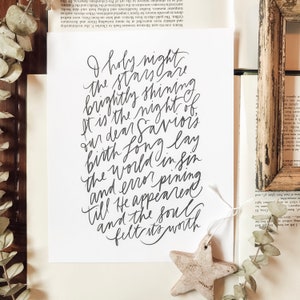 O holy night
the stars are
brightly shining
It is the night of
our dear Saviors
birth Long lay
the world in sin
and error pining
till He appeared
and the soul
felt its worth